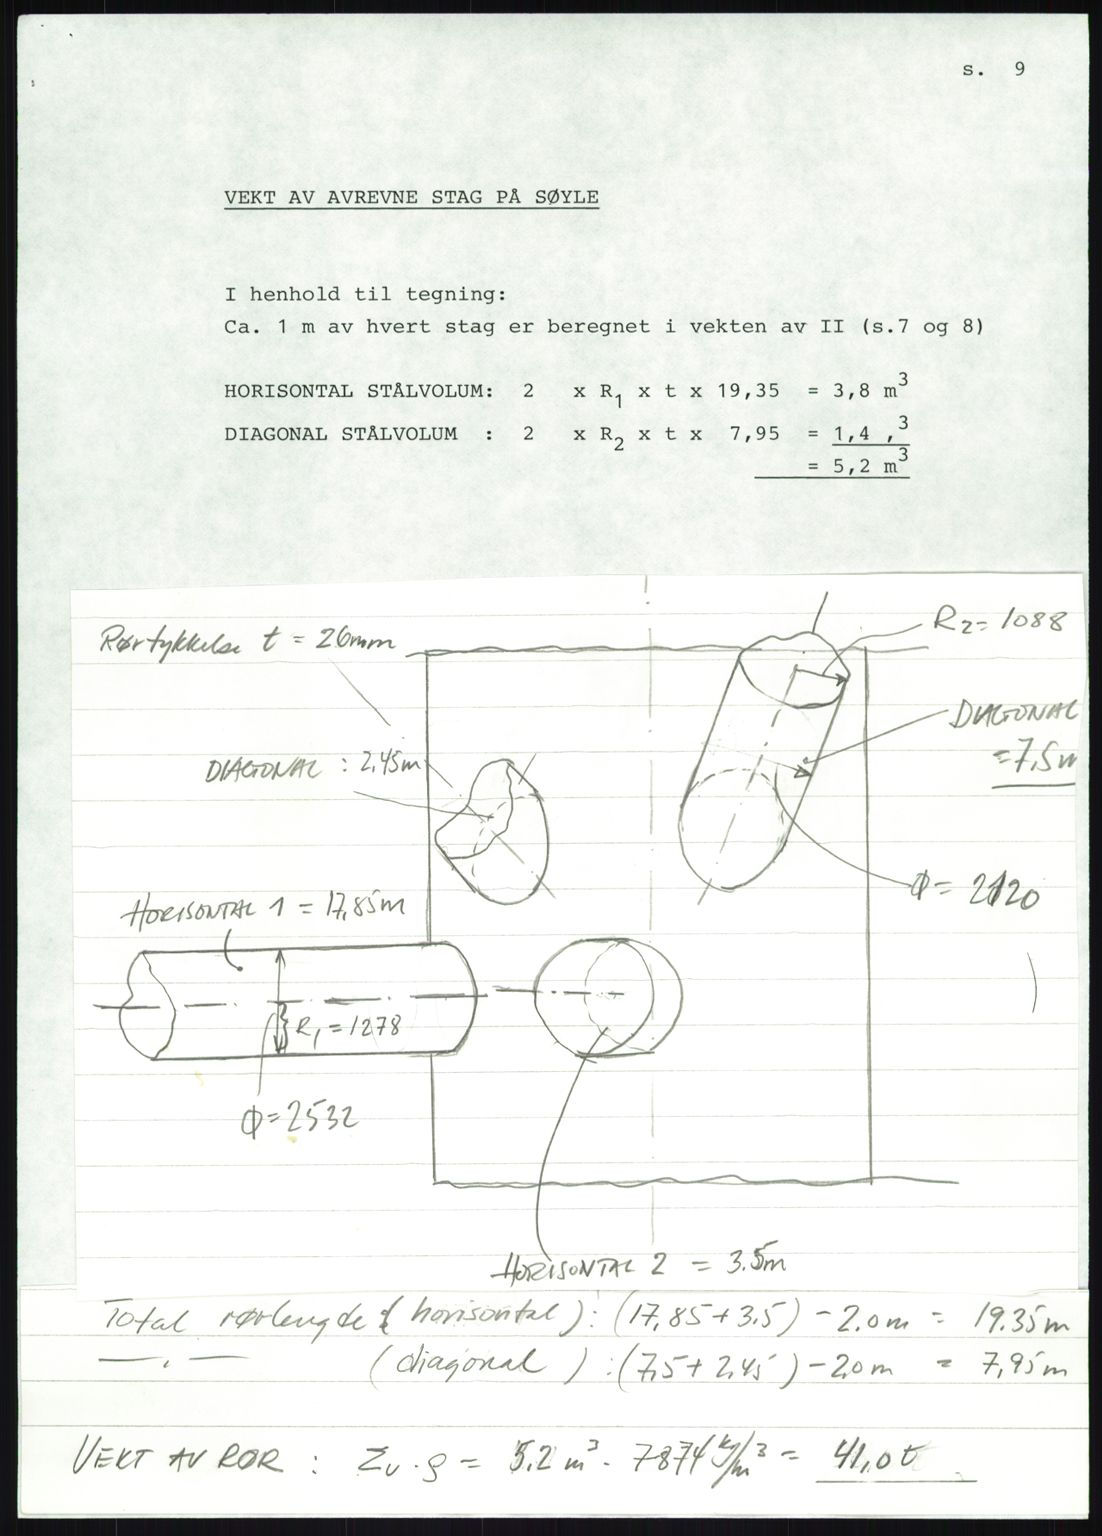 s. 9
VEKT AV AVREVNE STAG PÅ SØYLE
I henhold til tegning:
Ca. 1 m av hvert stag er beregnet i vekten av II (s.7 og 8)
HORISONTAL STÅLVOLUM: 2 x R₁ x t x 19,35 = 3,8 m³
DIAGONAL STÅLVOLUM : 2 x R₂ x t x 7,95 = 1,4 ,³
= 5,2 m³
Rørtykkelse t = 26mm
R₂= 1088
DIAGONAL
=7,5m
DIAGONAL : 2,45m
Ø= 2120
HORISONTAL 1 = 17,85m
R₁ = 1278
Ø=2532
HORISONTAL 2 = 3.5m
Total rørlengde (horisontal): (17,85+3.5) - 2.0m = 19.35m
—,— (diagonal) :(7,5+2,45) - 2,0m = 7,95m
VEKT AV RØR : Σv · ρ = 5.2 m³ · 7874 kg/m³ = 41,0t